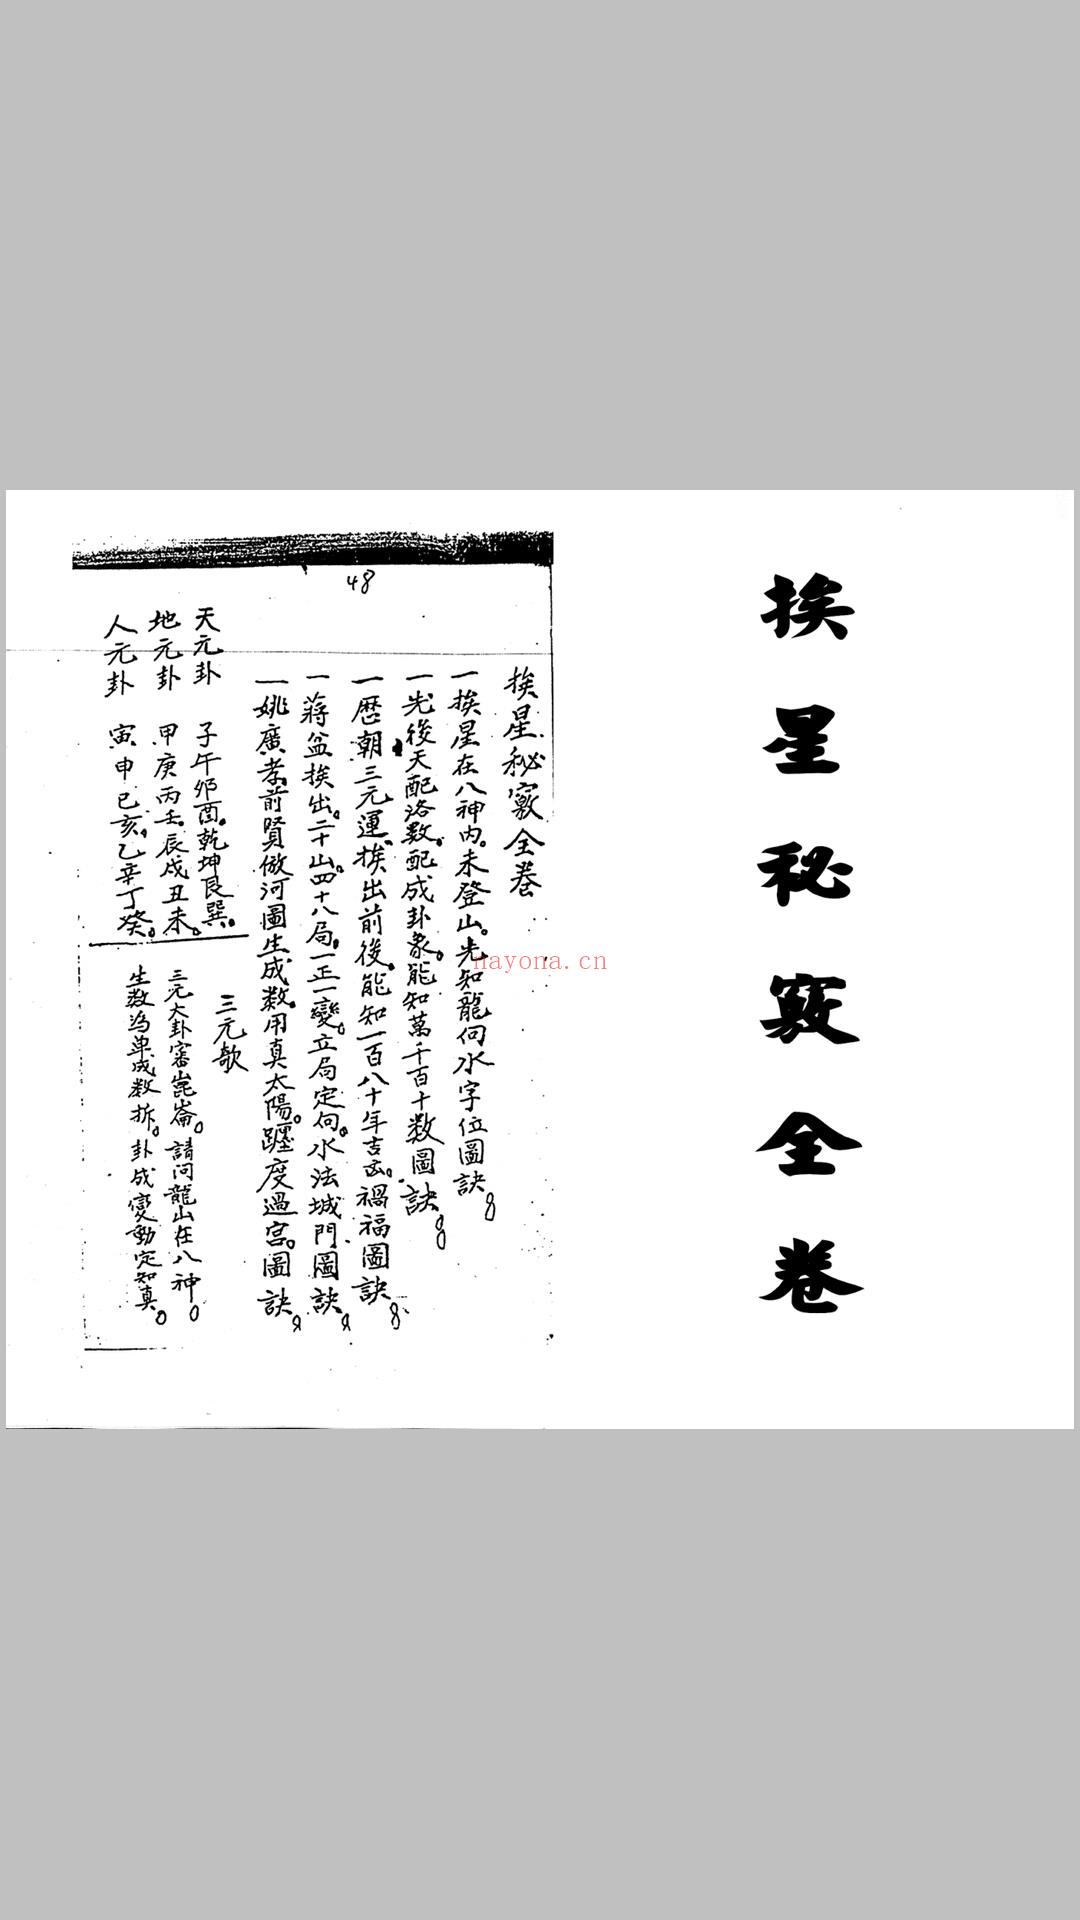 挨星秘竅全卷
48
挨星秘竅全卷
一挨星在八神内。未登山。先知龍向水字位圖訣。
一先後天配洛數。配成卦象。能知萬千百十數圖訣。
一歷朝三元運。挨出前後。能知一百八十年吉凶。禍福圖訣。
一蔣盆挨出。二十山。四十八局。一正一變。立局定向。水法城門圖訣。
一姚廣孝。前賢倣河圖生成數。用真太陽。躔度過宮。圖訣。
天元卦 子午夘酉。乾坤艮巽。
地元卦 甲庚丙壬。辰戌丑未。
人元卦 寅申巳亥。乙辛丁癸。
三元歌
三元大卦審崑崙。請问龍山在八神。
生數為單成數拆。卦成變動定知真。
nayona.cn